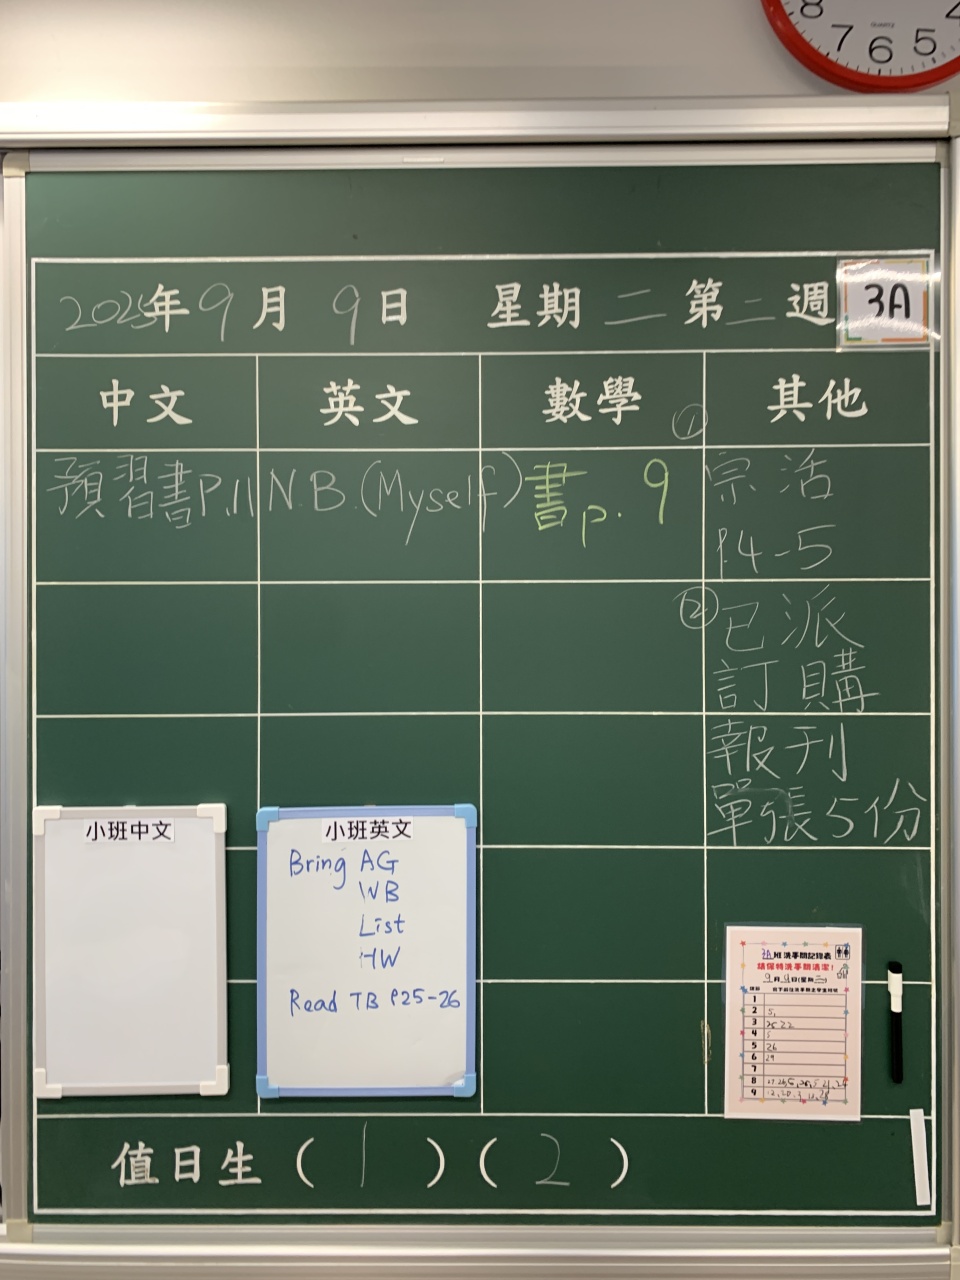 8 7 6 5
Quartz
2025年9月9日 星期二第二週 3A
中文 英文 數學 其他
預習書P.11
N.B.(Myself)
書p.9
①
宗活
P.4-5
②
已派
訂購
報刊
單張5份
小班中文
小班英文
Bring AG
WB
List
HW
Read TB P25-26
3A班洗手間記錄表
請保持洗手間清潔!
9月9日(星期二)
1
2 5,
3 25 22
4 5
5 26
6 29
7
8
9
值日生(1)(2)